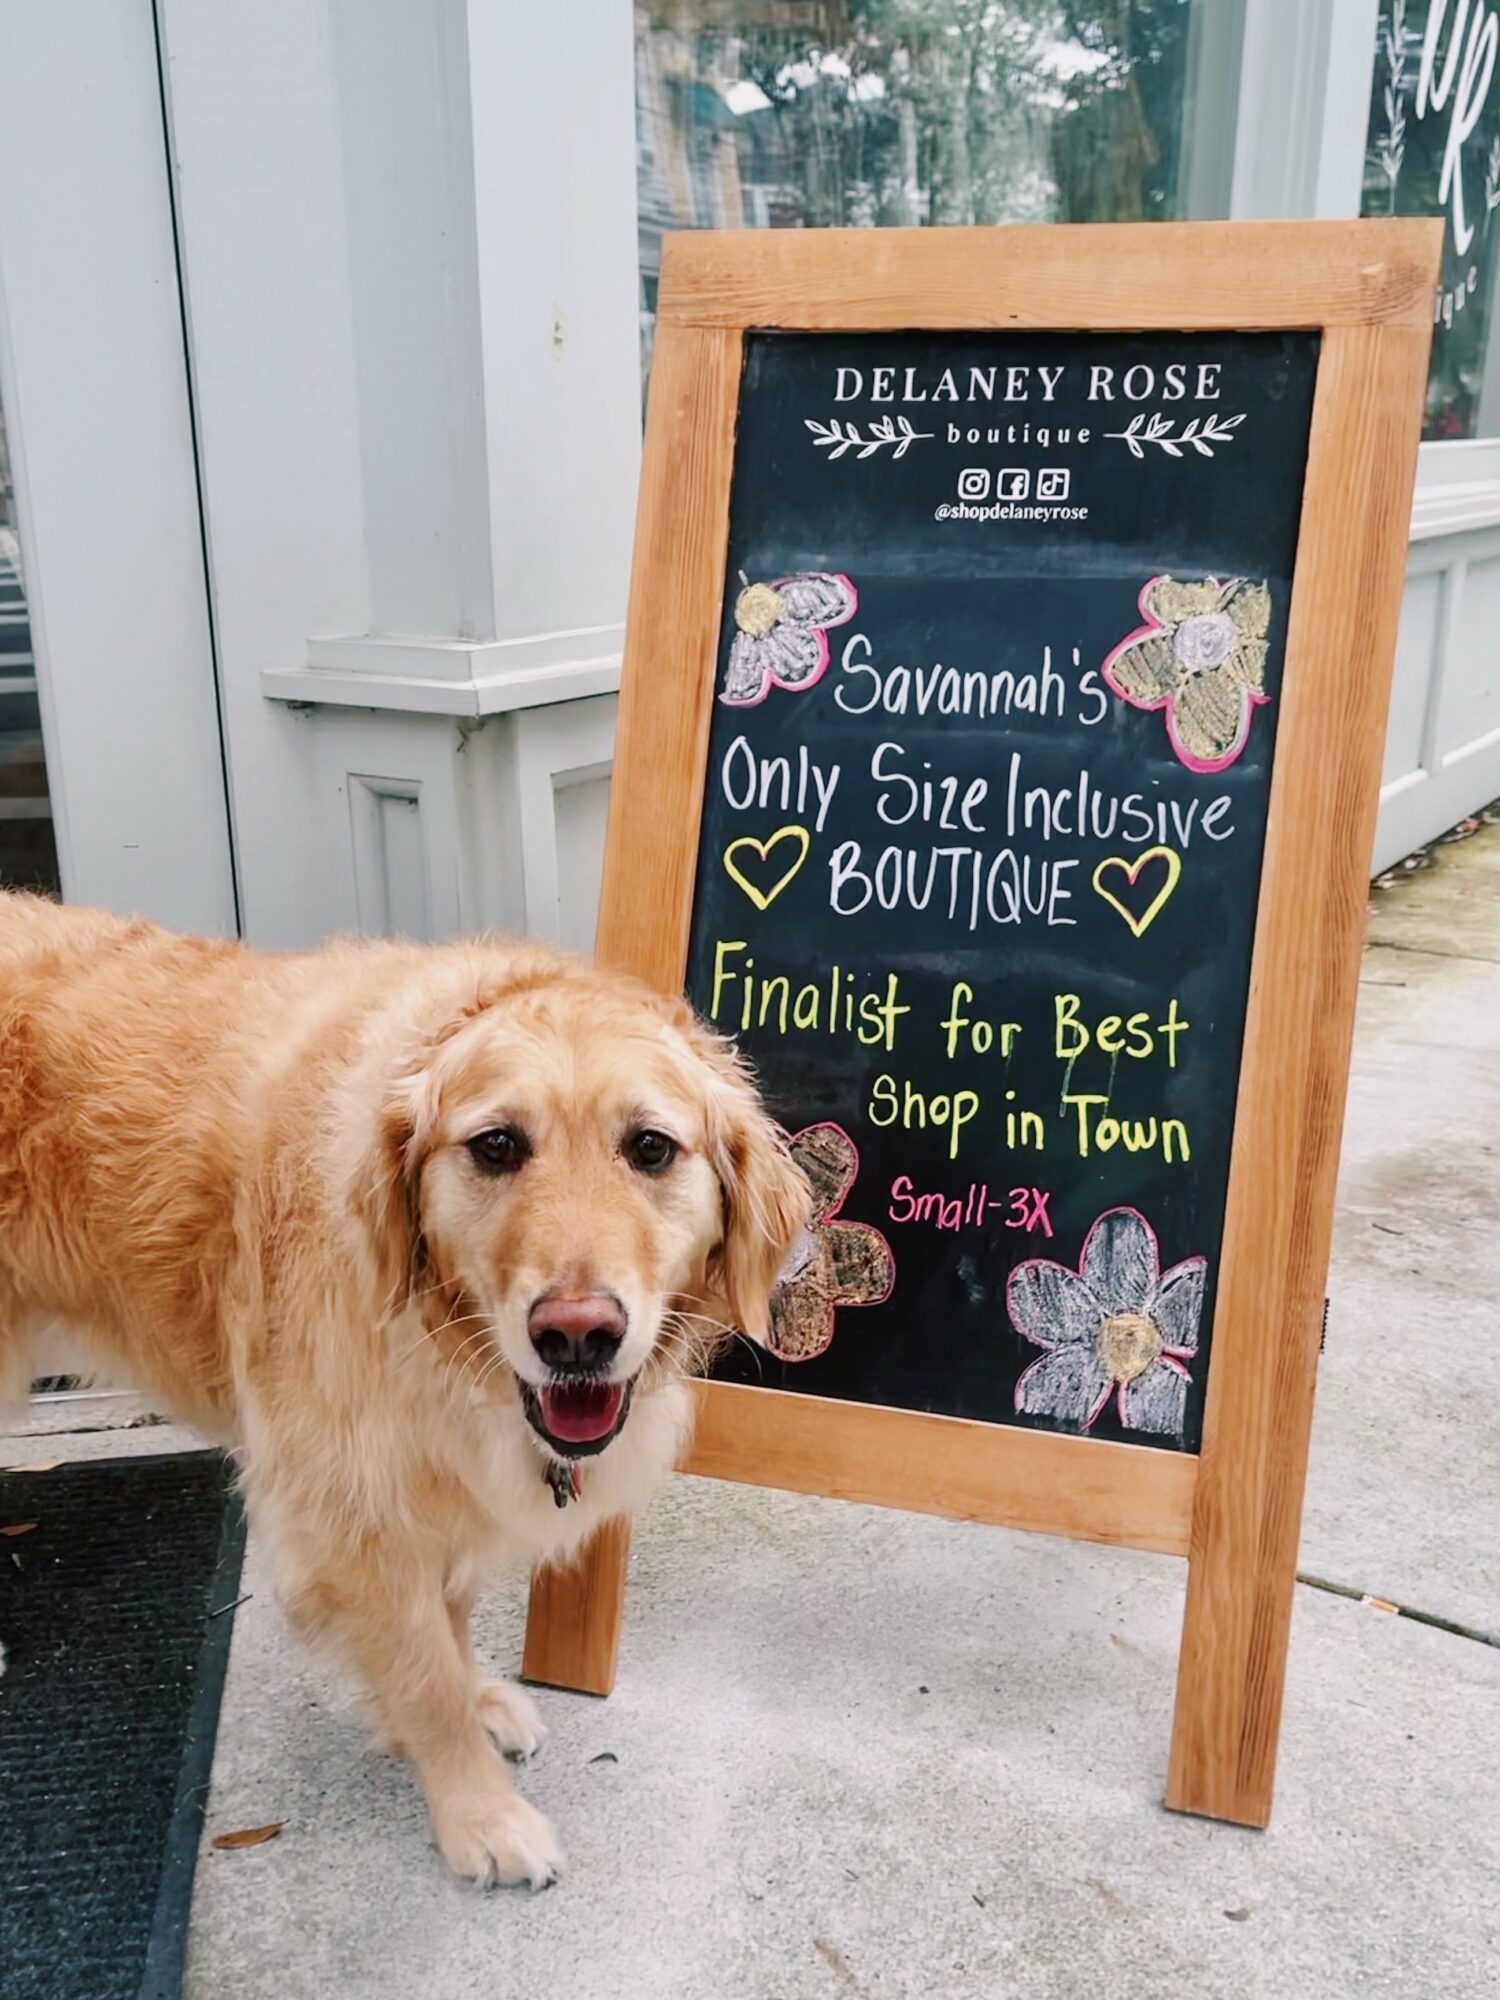 DELANEY ROSE
boutique
@shopdelaneyrose
Savannah's
Only Size Inclusive
BOUTIQUE
Finalist for Best
Shop in Town
Small-3X